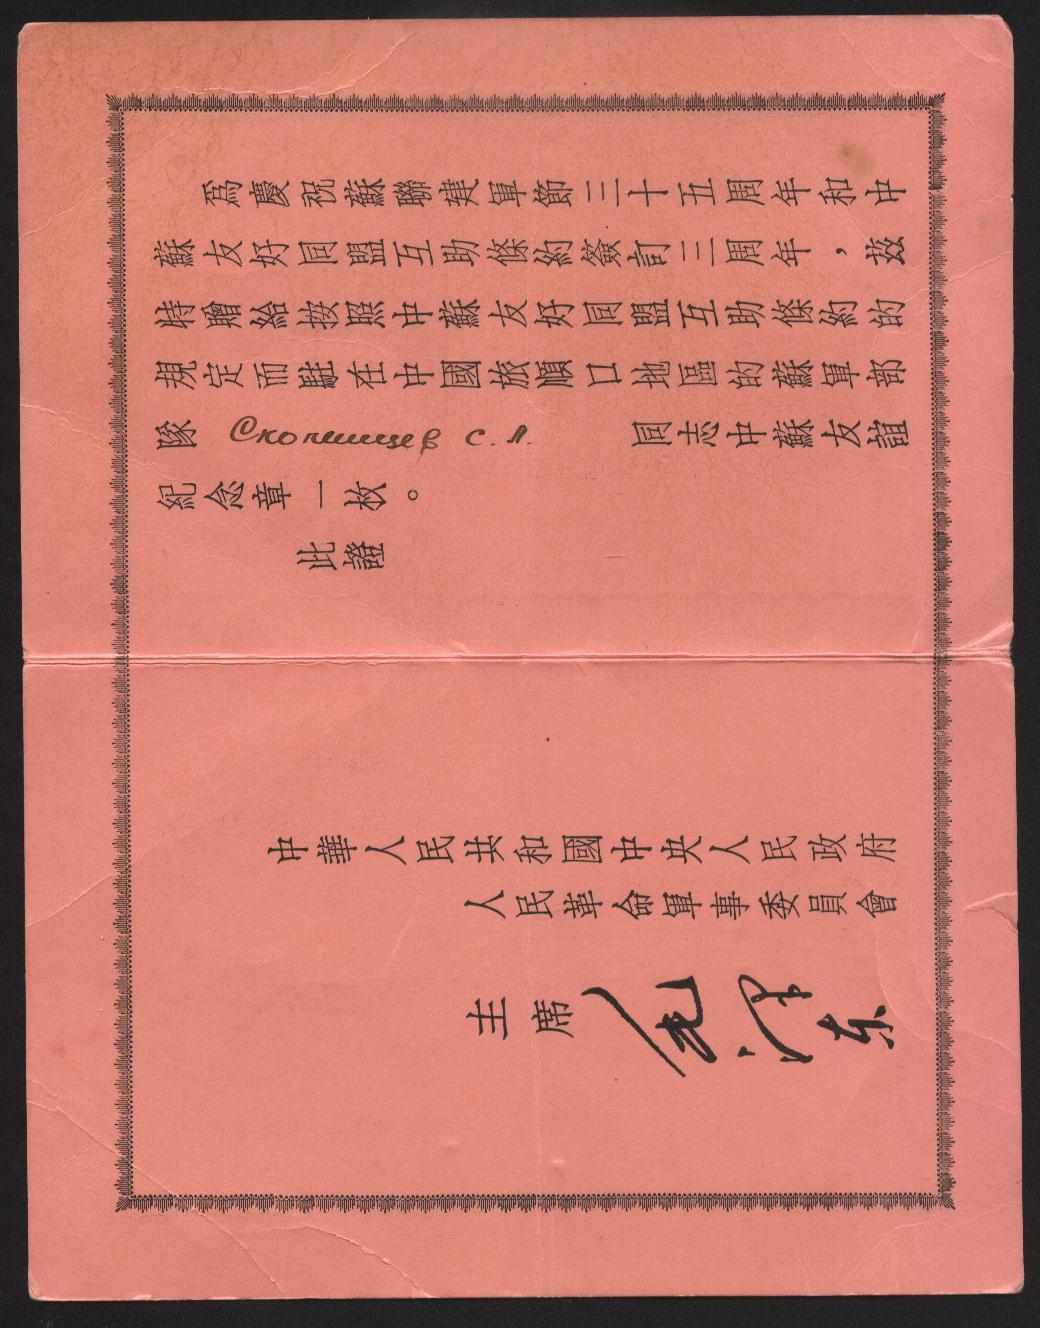 為慶祝蘇聯建軍節三十五周年和中
蘇友好同盟互助條約簽訂三周年，玆
特贈給按照中蘇友好同盟互助條約的
規定而駐在中國旅順口地區的蘇軍部
隊 Скопинцев С. Л. 同志中蘇友誼
紀念章一枚。
此證
中華人民共和國中央人民政府
人民革命軍事委員會
主席 毛澤东